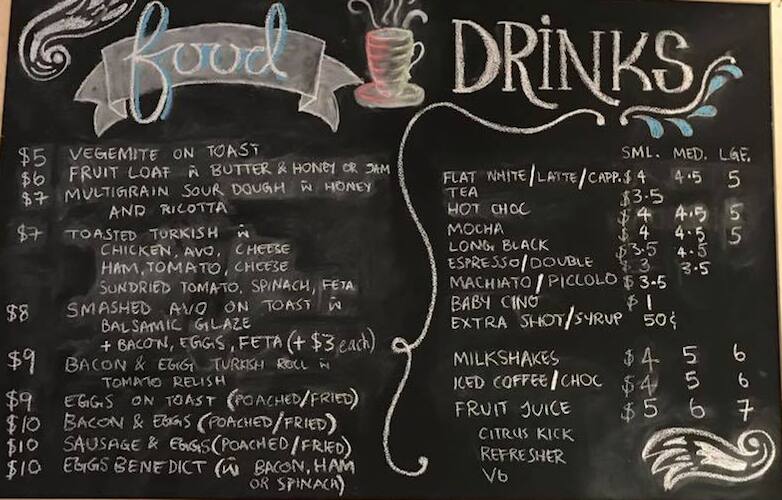 food
$5 VEGEMITE ON TOAST
$6 FRUIT LOAF w̄ BUTTER & HONEY OR JAM
$7 MULTIGRAIN SOUR DOUGH w̄ HONEY
AND RICOTTA
$7 TOASTED TURKISH w̄
CHICKEN, AVO, CHEESE
HAM, TOMATO, CHEESE
SUNDRIED TOMATO, SPINACH, FETA
$8 SMASHED AVO ON TOAST w̄
BALSAMIC GLAZE
+ BACON, EGGS, FETA (+ $3 each)
$9 BACON & EGG TURKISH ROLL w̄
TOMATO RELISH
$9 EGGS ON TOAST (POACHED/FRIED)
$10 BACON & EGGS (POACHED/FRIED)
$10 SAUSAGE & EGGS (POACHED/FRIED)
$10 EGGS BENEDICT (w̄ BACON, HAM
OR SPINACH)
DRINKS
SML. MED. LGE.
FLAT WHITE/LATTE/CAPP. $4 4.5 5
TEA $3.5
HOT CHOC $4 4.5 5
MOCHA $4 4.5 5
LONG BLACK $3.5 4.5
ESPRESSO/DOUBLE $3 3.5
MACHIATO/PICCOLO $3.5
BABY CINO $1
EXTRA SHOT/SYRUP 50¢
MILKSHAKES $4 5 6
ICED COFFEE/CHOC $4 5 6
FRUIT JUICE $5 6 7
CITRUS KICK
REFRESHER
V6